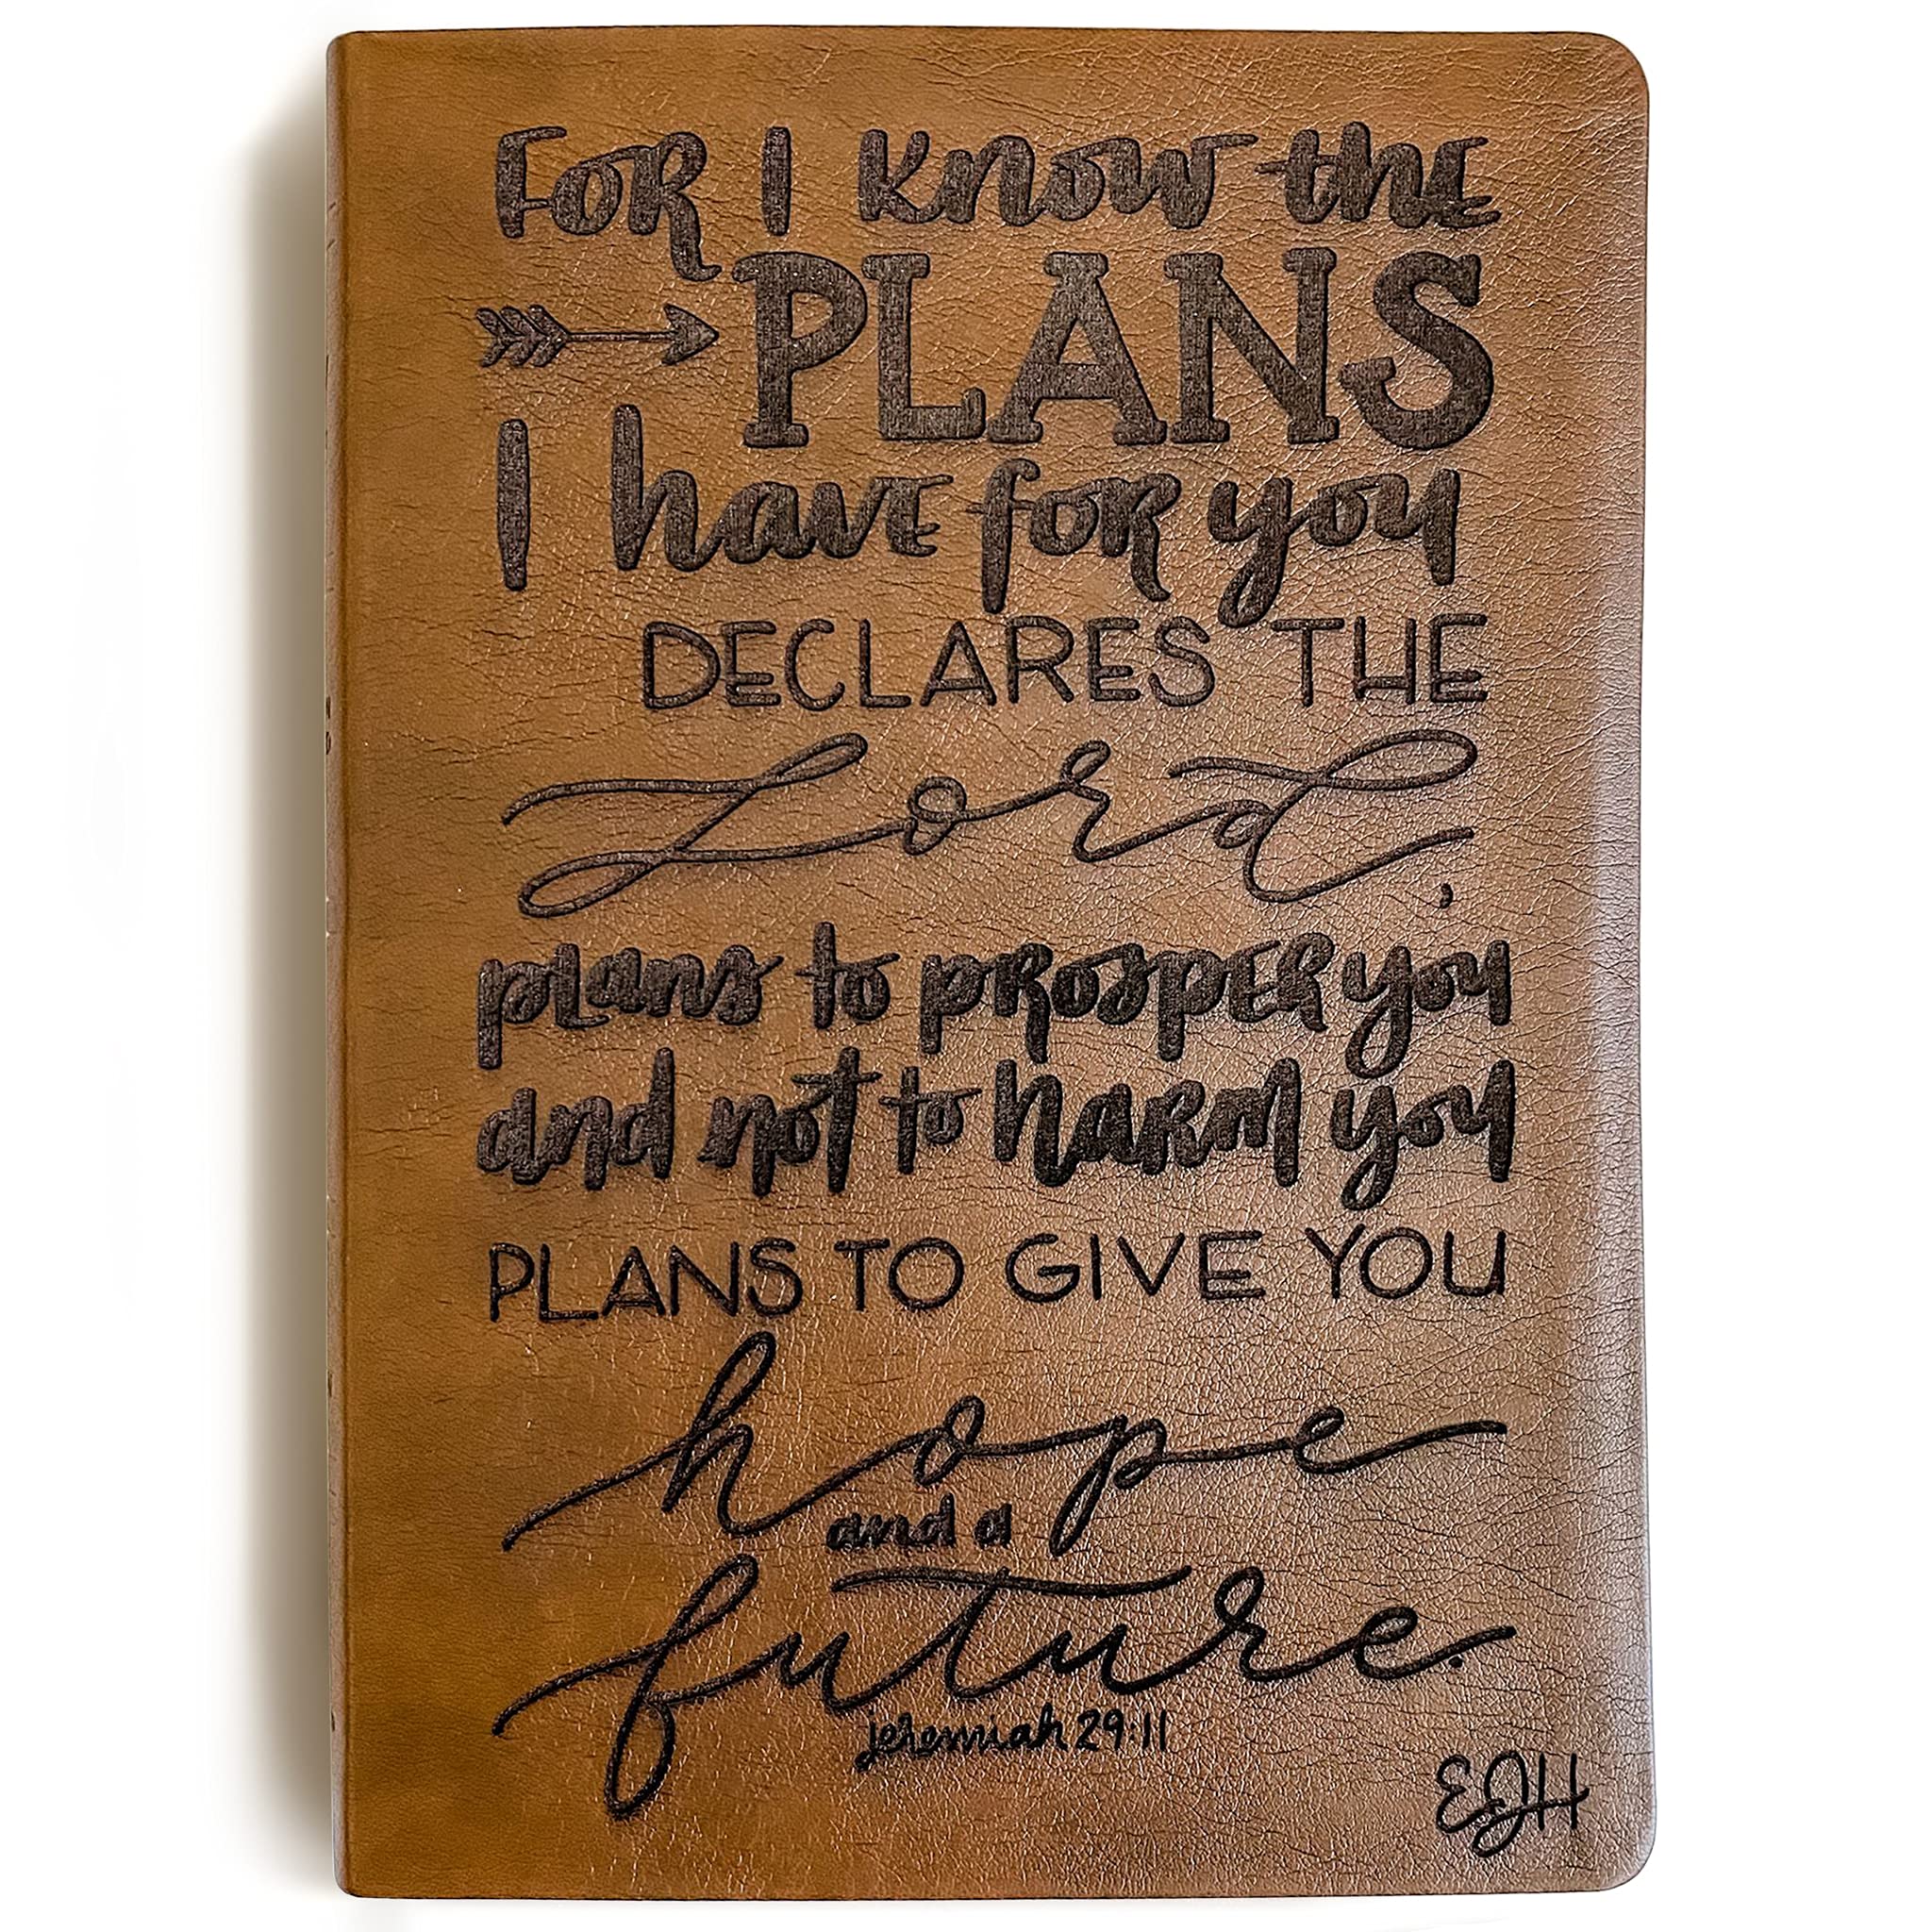 FOR I know the
PLANS
I have for you
DECLARES THE
Lord,
plans to prosper you
and not to harm you
PLANS TO GIVE YOU
hope
and a
future.
jeremiah 29:11
EJH